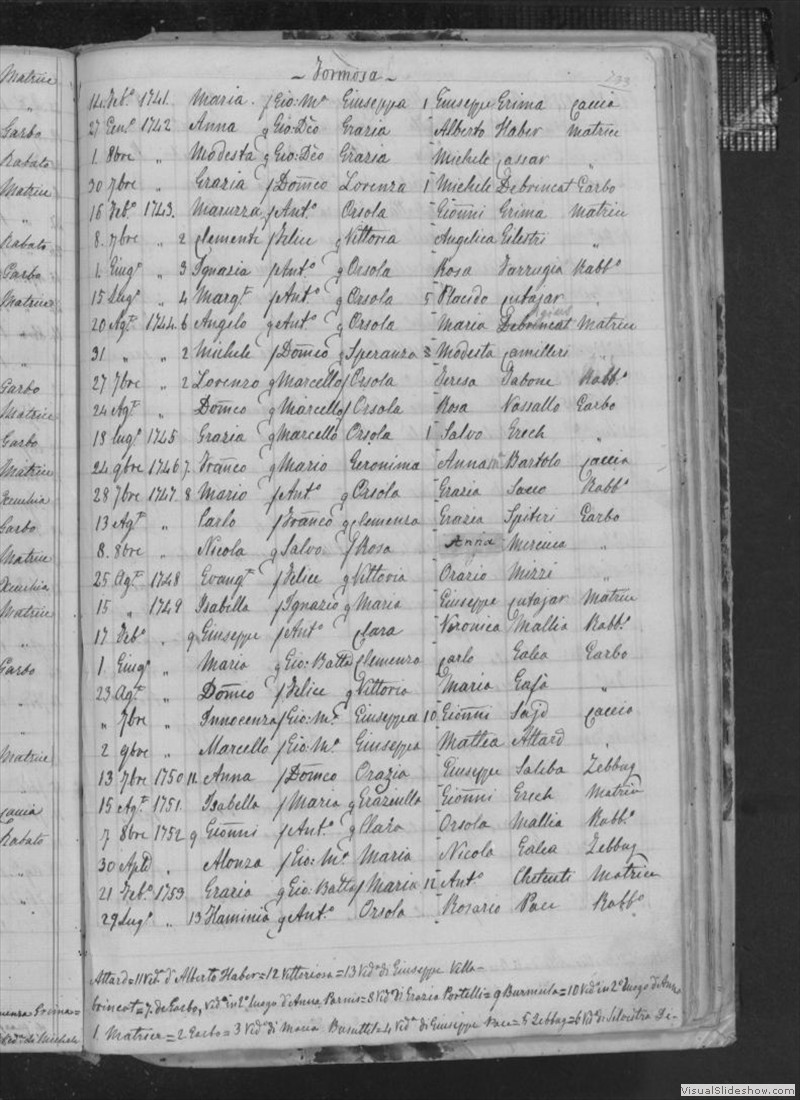 - Formosa -
14. Feb.º 1741. Maria f Gio: Mª Giuseppa 1 Giuseppe Grima Caccia
27 Genº 1742 Anna q Gio: Dèo Grazia Alberto Haber Matrice
1. 8bre " Modesta q Gio: Dèo Grazia Michele Cassar "
30 7bre " Grazia f Domco Lorenza 1 Michele Debrincat Garbo
16 Feb.º 1743. Maruzza f Ant.º Orsola Gionni Grima Matrice
8. 7bre " 2 Clemente f Felice q Vittoria Angelica "
1. Giugº " 3 Ignazia f Ant.º q Orsola Rosa Farrugia Rabb.º
15 Lugº " 4 Margt f Ant.º q Orsola 5 Placido Cutajar "
20 Agt 1744. 6 Angelo q Ant.º q Orsola Maria Debrincat Matrice
31 " " 2 Michele f Domco q Speranza 3 Modesta Camilleri "
27 7bre " 2 Lorenzo q Marcello f Orsola Teresa Tabone Rabb.º
24 Agt " Domco q Marcello f Orsola Rosa Vassallo Garbo
18 Lugº 1745 Grazia q Marcello Orsola 1 Salvo Erech "
24 9bre 1746 7. Franco q Mario Geronima Anna Bartolo Caccia
28 7bre 1747. 8 Mario f Ant.º q Orsola Grazia Sacco Rabb.º
13 Agt " Carlo f Franco q Clemenza Grazia Spiteri Garbo
8. 8bre " Nicola q Salvo f Rosa Anna Mercieca "
25 Agt 1748 Evangt f Felice q Vittoria Orazio Mizzi "
15 " 1749 Isabella f Ignazio q Maria Giuseppe Cutajar Matrice
17 Feb.º " 9 Giuseppe f Ant.º Clara Veronica Mallia Rabb.º
1 Giugº " Maria q Gio: Batta Clemenza Carlo Galea Garbo
23 Agt " Domco f Felice q Vittoria Maria Gafà "
" 7bre " Innocenza f Gio: Mª Giuseppa 10 Gionni Sajd Caccia
2 9bre " Marcello f Gio: Mª Giuseppa Mattea Attard "
13 7bre 1750 11. Anna f Domco Orazia Giuseppe Saliba Zebbug
15 Agt 1751. Isabella f Maria q Graziulla Gionni Erech Matrice
7 8bre 1752 9 Gionni f Ant.º q Clara Orsola Mallia Rabb.º
30 Aple " Alonza f Gio: Mª Maria Nicola Galea Zebbug
21 Feb.º 1753 Grazia q Gio: Batta f Maria 12 Ant.º Chetcuti Matrice
29 Lugº " 13 Flaminia q Ant.º Orsola Rosario Pace Rabb.º
Attard = 11 Vedª d' Alberto Haber = 12 Vittoriosa = 13 Vedª di Giuseppe Vella -
brincat = 7. de Garbo, Vedº in 2º luogo d' Anna Parnis = 8 Vedº di Grazia Portelli = 9 Burmula = 10 Vedº in 2º luogo di
1. Matrice = 2 Garbo = 3 Vedº di Maria Busuttil = 4 Vedª di Giuseppe Pace = 5 Zebbug = 6 Vedº di Silvestra De-
Matrice
"
Garbo
Rabato
Matrice
"
Rabato
Garbo
Matrice
Garbo
Matrice
Garbo
Matrice
Xeuchia
Garbo
Matrice
Xeuchia
Matrice
Garbo
Matrice
Caccia
Rabato
VisualSlideshow.com